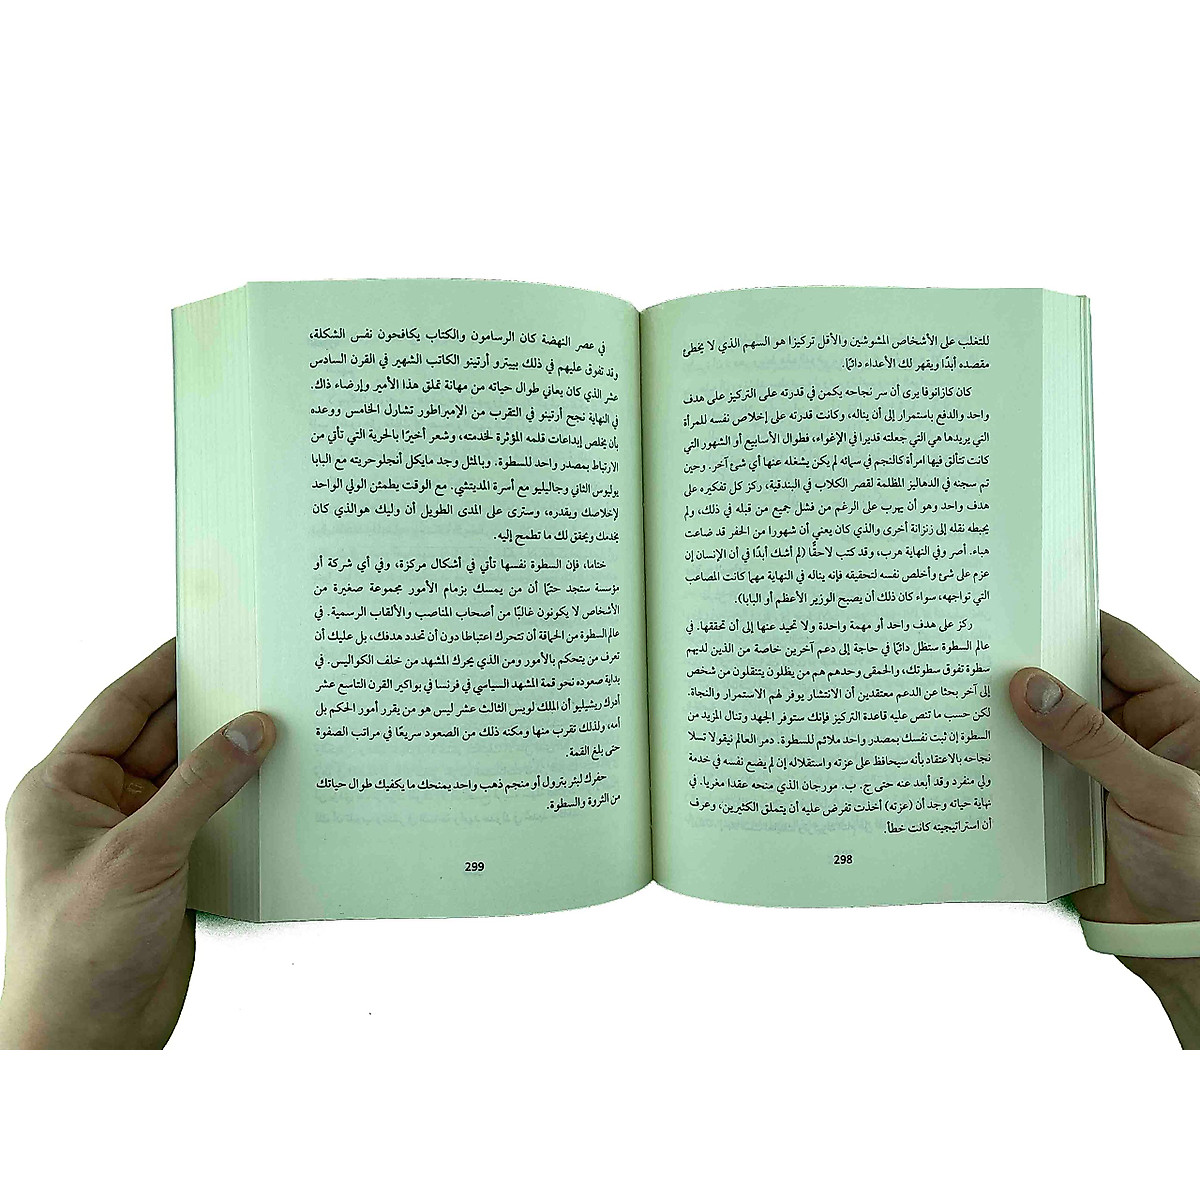 للتغلب على الأشخاص المشوشين والأقل تركيزا هو السهم الذي لا يخطئ
مقصده أبدًا ويقهر لك الأعداء دائمًا.
كان كازانوفا يرى أن سر نجاحه يكمن في قدرته على التركيز على هدف
واحد والدفع باستمرار إلى أن يناله، وكانت قدرته على إخلاص نفسه للمرأة
التي يريدها هي التي جعلته قديرا في الإغواء، فطوال الأسابيع أو الشهور التي
كانت تتألق فيها امرأة كالنجم في سمائه لم يكن يشغله عنها أي شئ آخر. وحين
تم سجنه في الدهاليز المظلمة لقصر الكلاب في البندقية، ركز كل تفكيره على
هدف واحد وهو أن يهرب على الرغم من فشل جميع من قبله في ذلك، ولم
يحبطه نقله إلى زنزانة أخرى والذي كان يعني أن شهورا من الحفر قد ضاعت
هباء. أصر وفي النهاية هرب، وقد كتب لاحقًا (لم أشك أبدًا في أن الإنسان إن
عزم على شئ وأخلص نفسه لتحقيقه فإنه يناله في النهاية مهما كانت المصاعب
التي تواجهه، سواء كان ذلك أن يصبح الوزير الأعظم أو البابا).
ركز على هدف واحد أو مهمة واحدة ولا تحيد عنها إلى أن تحققها. في
عالم السطوة ستظل دائمًا في حاجة إلى دعم آخرين خاصة من الذين لديهم
سطوة تفوق سطوتك، والحمقى وحدهم هم من يظلون يتنقلون من شخص
إلى آخر بحثا عن الدعم معتقدين أن الانتشار يوفر لهم الاستمرار والنجاة.
لكن حسب ما تنص عليه قاعدة التركيز فإنك ستوفر الجهد وتنال المزيد من
السطوة إن ثبت نفسك بمصدر واحد ملائم للسطوة. دمر العالم نيقولا تسلا
نجاحه بالاعتقاد بأنه سيحافظ على عزته واستقلاله إن لم يضع نفسه في خدمة
ولي منفرد وقد أبعد عنه حتى ج. ب. مورجان الذي منحه عقدا مغريا. في
نهاية حياته وجد أن (عزته) أخذت تفرض عليه أن يتملق الكثيرين، وعرف
أن استراتيجيته كانت خطأ.
298
في عصر النهضة كان الرسامون والكتاب يكافحون نفس الشكلة،
وقد تفوق عليهم في ذلك بييترو أرتينو الكاتب الشهير في القرن السادس
عشر الذي كان يعاني طوال حياته من مهانة تملق هذا الأمير وإرضاء ذاك.
في النهاية نجح أرتينو في التقرب من الإمبراطور تشارل الخامس ووعده
بأن يخلص إبداعات قلمه المؤثرة لخدمته، وشعر أخيرًا بالحرية التي تأتي من
الارتباط بمصدر واحد للسطوة. وبالمثل وجد مايكل أنجلوحريته مع البابا
يوليوس الثاني وجاليليو مع أسرة المديتشي. مع الوقت يطمئن الولي الواحد
لإخلاصك ويقدره، وسترى على المدى الطويل أن وليك هوالذي كان
يخدمك ويحقق لك ما تطمح إليه.
ختاما، فإن السطوة نفسها تأتي في أشكال مركزة، وفي أي شركة أو
مؤسسة ستجد حتمًا أن من يمسك بزمام الأمور مجموعة صغيرة من
الأشخاص لا يكونون غالبًا من أصحاب المناصب والألقاب الرسمية. في
عالم السطوة من الحماقة أن تتحرك اعتباطا دون أن تحدد هدفك، بل عليك أن
تعرف من يتحكم بالأمور ومن الذي يحرك المشهد من خلف الكواليس. في
بداية صعوده نحو قمة المشهد السياسي في فرنسا في بواكير القرن التاسع عشر
أدرك ريشيليو أن الملك لويس الثالث عشر ليس هو من يقرر أمور الحكم بل
أمه، ولذلك تقرب منها ومكنه ذلك من الصعود سريعًا في مراتب الصفوة
حتى بلغ القمة.
حفرك لبئر بترول أو منجم ذهب واحد يمنحك ما يكفيك طوال حياتك
من الثروة والسطوة.
299